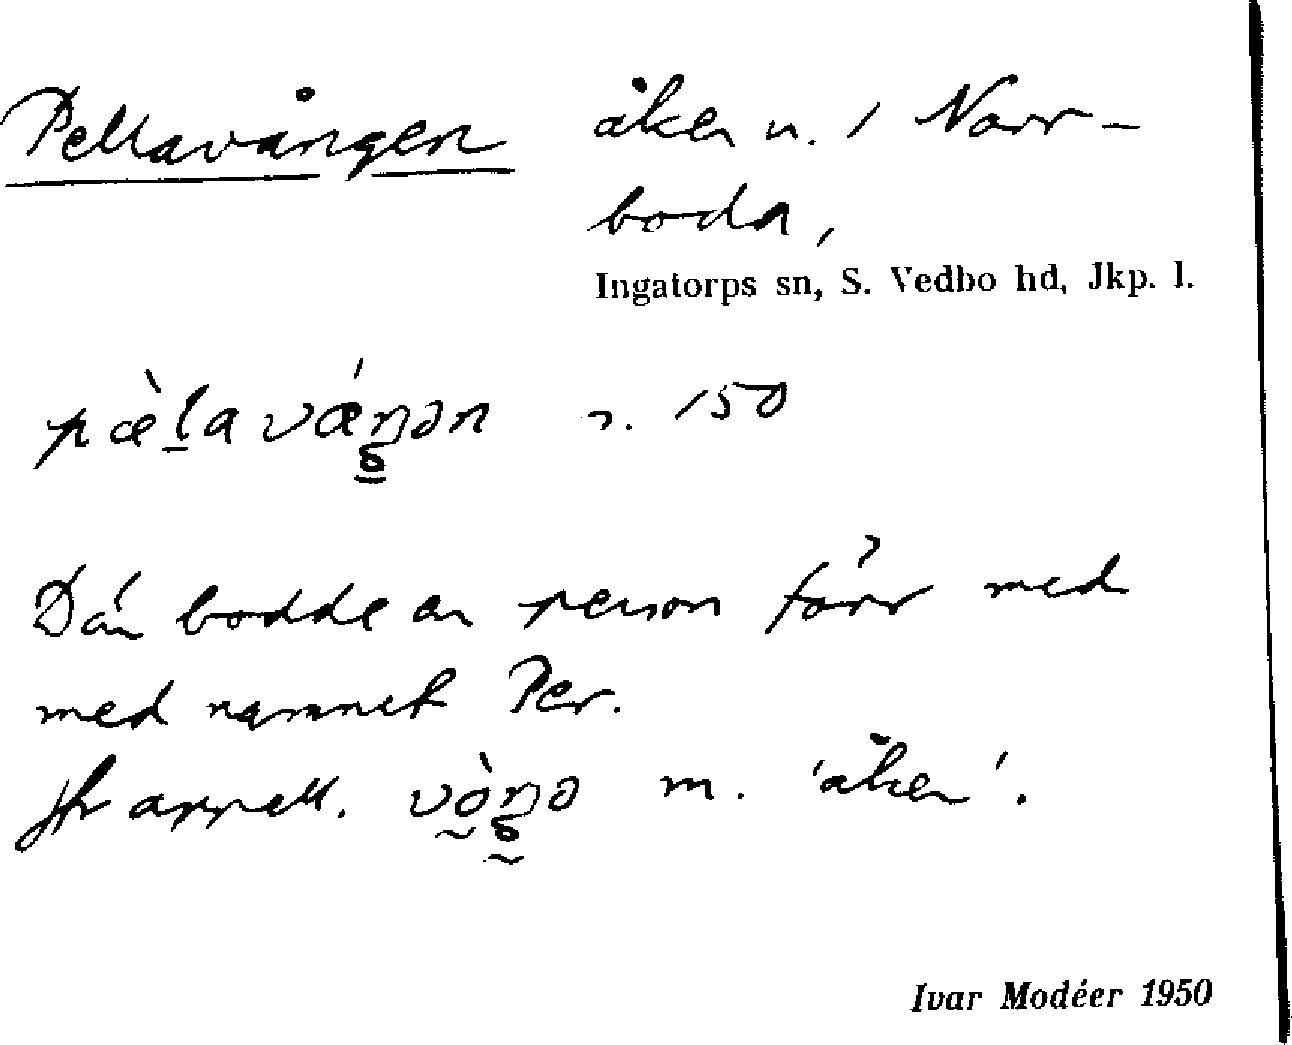 Pellavången åker n. / Norr-
boda,
Ingatorps sn, S. Vedbo hd, Jkp. l.
pæ̀l̠avǽŋən n. 150
Där bodde en person förr med
med namnet Per.
Jfr appell. vòŋə m. 'åker'.
Ivar Modéer 1950